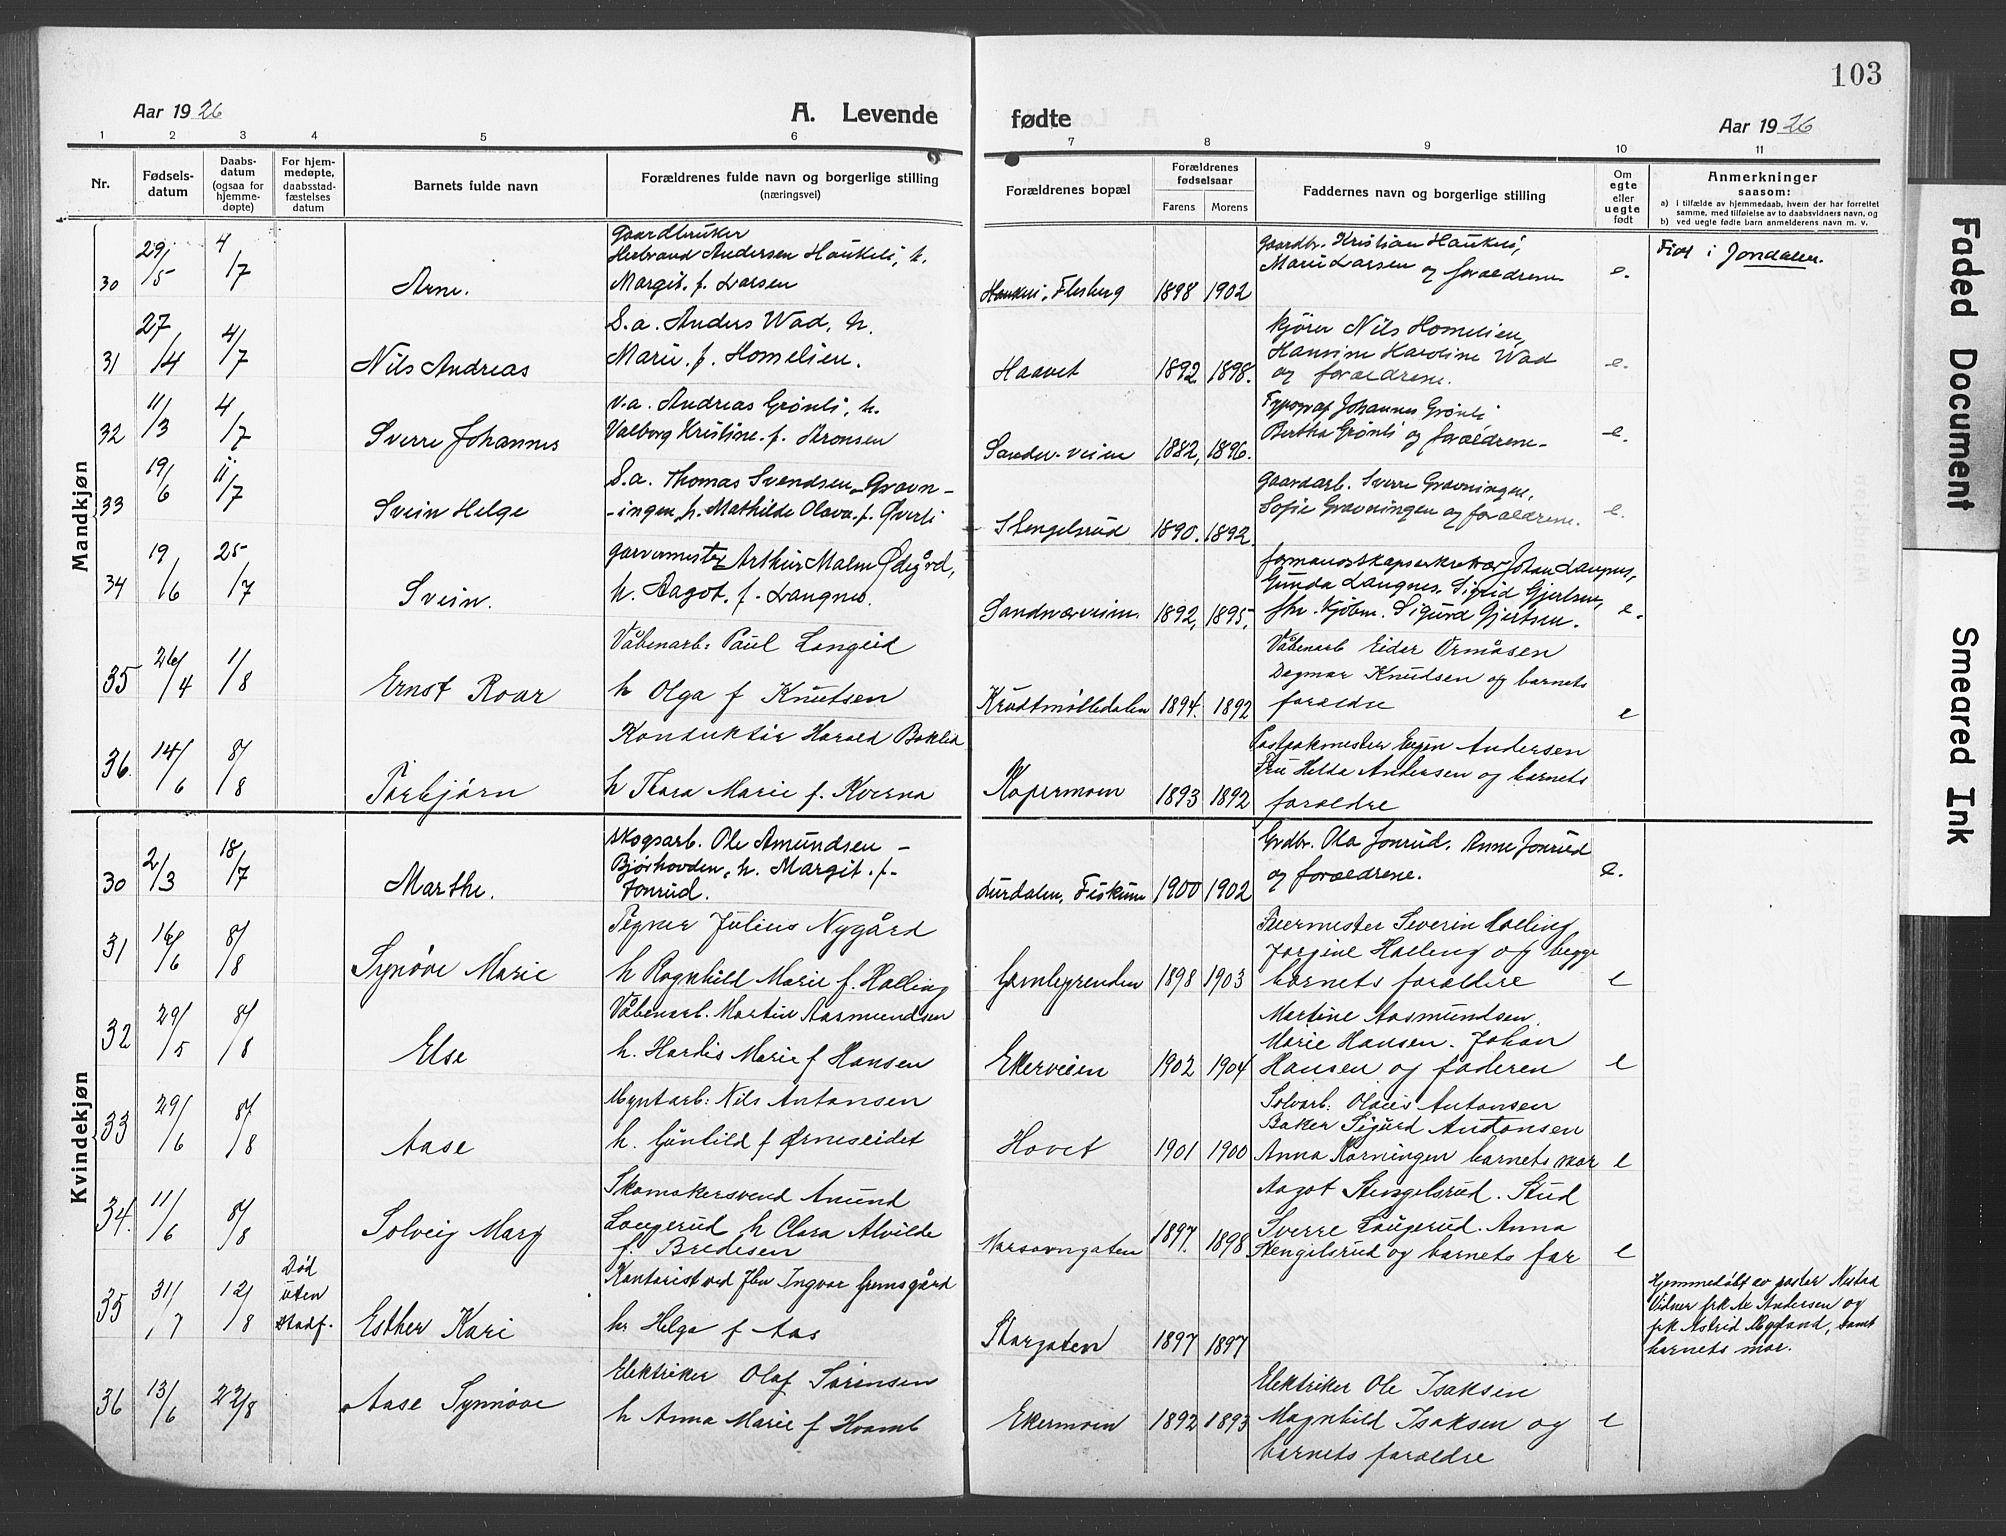 103
Aar 1926
A. Levende
fødte
Aar 1926
1 2 3 4 5 6 7 8 9 10 11
Nr.
Fødsels-
datum
Daabs-
datum
(ogsaa for
hjemme-
døpte)
For hjem-
medøpte,
daabsstad-
fæstelses
datum
Barnets fulde navn
Forældrenes fulde navn og borgerlige stilling
(næringsvei)
Forældrenes bopæl
Forældrenes
fødselsaar
Farens Morens
Faddernes navn og borgerlige stilling
Om
egte
eller
uegte
født
Anmerkninger
saasom:
a) i tilfælde av hjemmedaab, hvem der har forrettet
samme, med tilføielse av to daabsvidners navn, og
b) ved uegte fødte barn anmelderens navn m. v.
Mandkjøn
30 29/5 4/7
Arne.
Gaardbruker
Herbrand Andersen Haukeli, h.
Margit. f. Larsen
Haukeli, Flesberg 1898 1902
Gaardbr. Kristian Haukeli,
Marie Larsen og forældrene
e.
Fiol i Jondalen.
31 27/4 4/7
Nils Andreas
S.a. Anders Wad, h.
Marie. f. Homelien.
Haavet 1892 1898.
Kjører Nils Homelien,
Hansine Karoline Wad
og forældrene.
e.
32 11/3 4/7
Sverre Johannes
v.a. Andreas Grønli, h.
Valborg Kristine. f. Aronsen
Sandsv. veien 1882, 1896.
Typograf Johannes Grønli
Bertha Grønli og forældrene-
e.
33 19/6 11/7
Svein Helge
S.a. Thomas Svendsen Gravn-
-ingen, h. Mathilde Olava, f. Øverli
Stengelsrud 1890. 1892.
Gaardarb. Sverre Gravningen,
Sofie Gravningen og forældrene.
e.
34 19/6 25/7
Svein.
garvermester Arthur Malm Ødegård,
h. Aagot. f. Langnes.
Sandsværveien 1892, 1895,
formandskapsekretær Johan Langnes,
Gunda Langnes, Sigrid Gjertsen,
Hr. Kjøbm. Sigurd Gjertsen.
e.
35 26/4 1/8
Ernst Roar
Våbenarb: Paul Langeid
h Olga f Knutsen
Krudtmølledalen 1894. 1892
Våbenarb Eider Ormåsen
Dagmar Knudsen og barnets
foraldre
e
36. 14/6 8/8
Torbjørn
Konduktør Harald Baklid
h Thora Marie f. Kverna
Kopermoen 1893 1892
Postpakmester Eugen Andersen
Fru Helda Andersen og barnets
foraldre
Kvindekjøn
30 2/3 18/7
Marthe.
skogsarb. Ole Amundsen -
Bjørhovden, h. Margit. f.
Jonrud.
Lurdalen, Fiskum 1900 1902
Grdbr. Ola Jonrud. Anne Jonrud
og forældrene.
e.
31 16/6 8/8
Synøve Marie
Tegner Julius Nygård
h Ragnhild Marie f. Halling
Gamlegrenden 1898 1903
Feiermester Severin Halling
Jorgine Halling og begge
barnets foraldre
e
32 29/5 8/8
Else
Våbenarb. Martin Aasmundsen
h. Hardis Marie f Hansen
Ekerveien 1902 1904
Martine Aasmundsen.
Marie Hansen. Johan
Hansen og faderen
e
33 29/6 8/8
Aase
Myntarb: Nils Antonsen
h. Gunhild f Ørneseidet
Hovet 1901 1900
Sølvarb: Olaus Antonsen
Baker Sigurd Antonsen
Anna Korningen barnets mor
e
34. 11/6 8/8
Solveig Mary
Skomakersvend Anund
Laugerud h Clara Alvilde
f. Bredesen
1897. 1898
Aagot Stengelsrud. Stud
Sverre Laugerud. Anna
Stengelsrud og barnets far
e
35 31/7 12/8
Død
uten
stadf.
Esther Kari
Kontorist ved Jbn Ingvar Gremsgård
h Helga f Aas
Storgaten 1897 1897
Hjemmedøbt av pastor Nestaa
Vidner frk Aa Andersen og
frk Astrid Myrland, samt
barnets mor.
36 13/6 22/8
Aase Synnøve
Elektriker Olaf Sørensen
h Anna Marie f Hvamb
Ekermoen 1892 1893
Elektriker Ole Isaksen
Magnhild Isaksen og
barnets foraldre
e
Faded Document
Smeared Ink